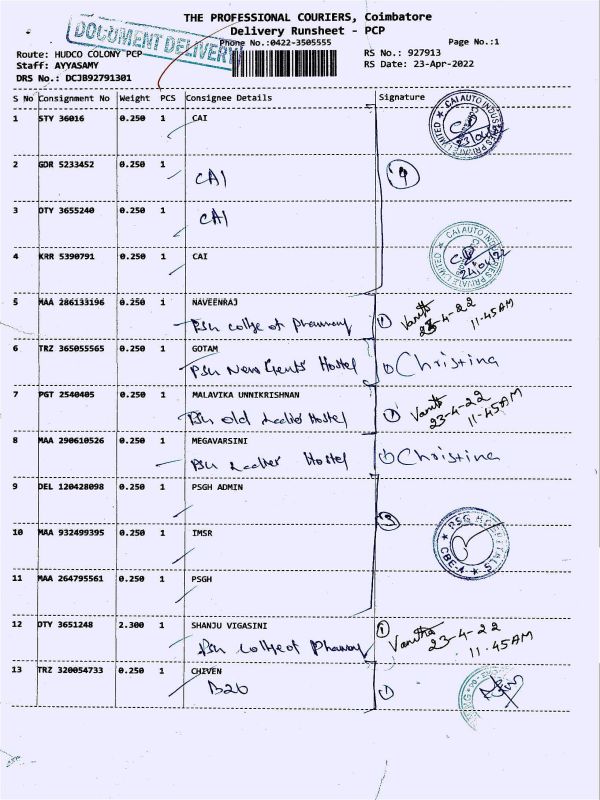 THE PROFESSIONAL COURIERS, Coimbatore
Delivery Runsheet - PCP
DOCUMENT DELIVERY
Phone No.:0422-3505555
Page No.:1
Route: HUDCO COLONY PCP
RS No.: 927913
Staff: AYYASAMY
RS Date: 23-Apr-2022
DRS No.: DCJB92791301
S No Consignment No Weight PCS Consignee Details Signature
1 STY 36016 0.250 1 CAI
CAI AUTO INDUSTRIES PRIVATE LIMITED
23/04/22
2 GDR 5233452 0.250 1
CAI
3 OTY 3655240 0.250 1
CAI
4 KRR 5390791 0.250 1 CAI
CAI AUTO INDUSTRIES PRIVATE LIMITED
24/04/22
5 MAA 286133196 0.250 1 NAVEENRAJ
Psh college of Pharmacy 1 Vanitha 23-4-22 11-45AM
6 TRZ 365055565 0.250 1 GOTAM
Psh New Gents Hostel 1 Christina
7 PGT 2540405 0.250 1 MALAVIKA UNNIKRISHNAN
Psh old Hostel 1 Vanitha 23-4-22 11-45AM
8 MAA 290610526 0.250 1 MEGAVARSINI
Psh Hostel 1 Christina
9 DEL 120428098 0.250 1 PSGH ADMIN
3
PSG HOSPITALS
CBE-4
10 MAA 932499395 0.250 1 IMSR
11 MAA 264795561 0.250 1 PSGH
12 OTY 3651248 2.300 1 SHANJU VIGASINI
Psh College of Pharmacy 1 Vanitha 23-4-22 11.45AM
13 TRZ 320054733 0.250 1 CHIVEN
B26 1